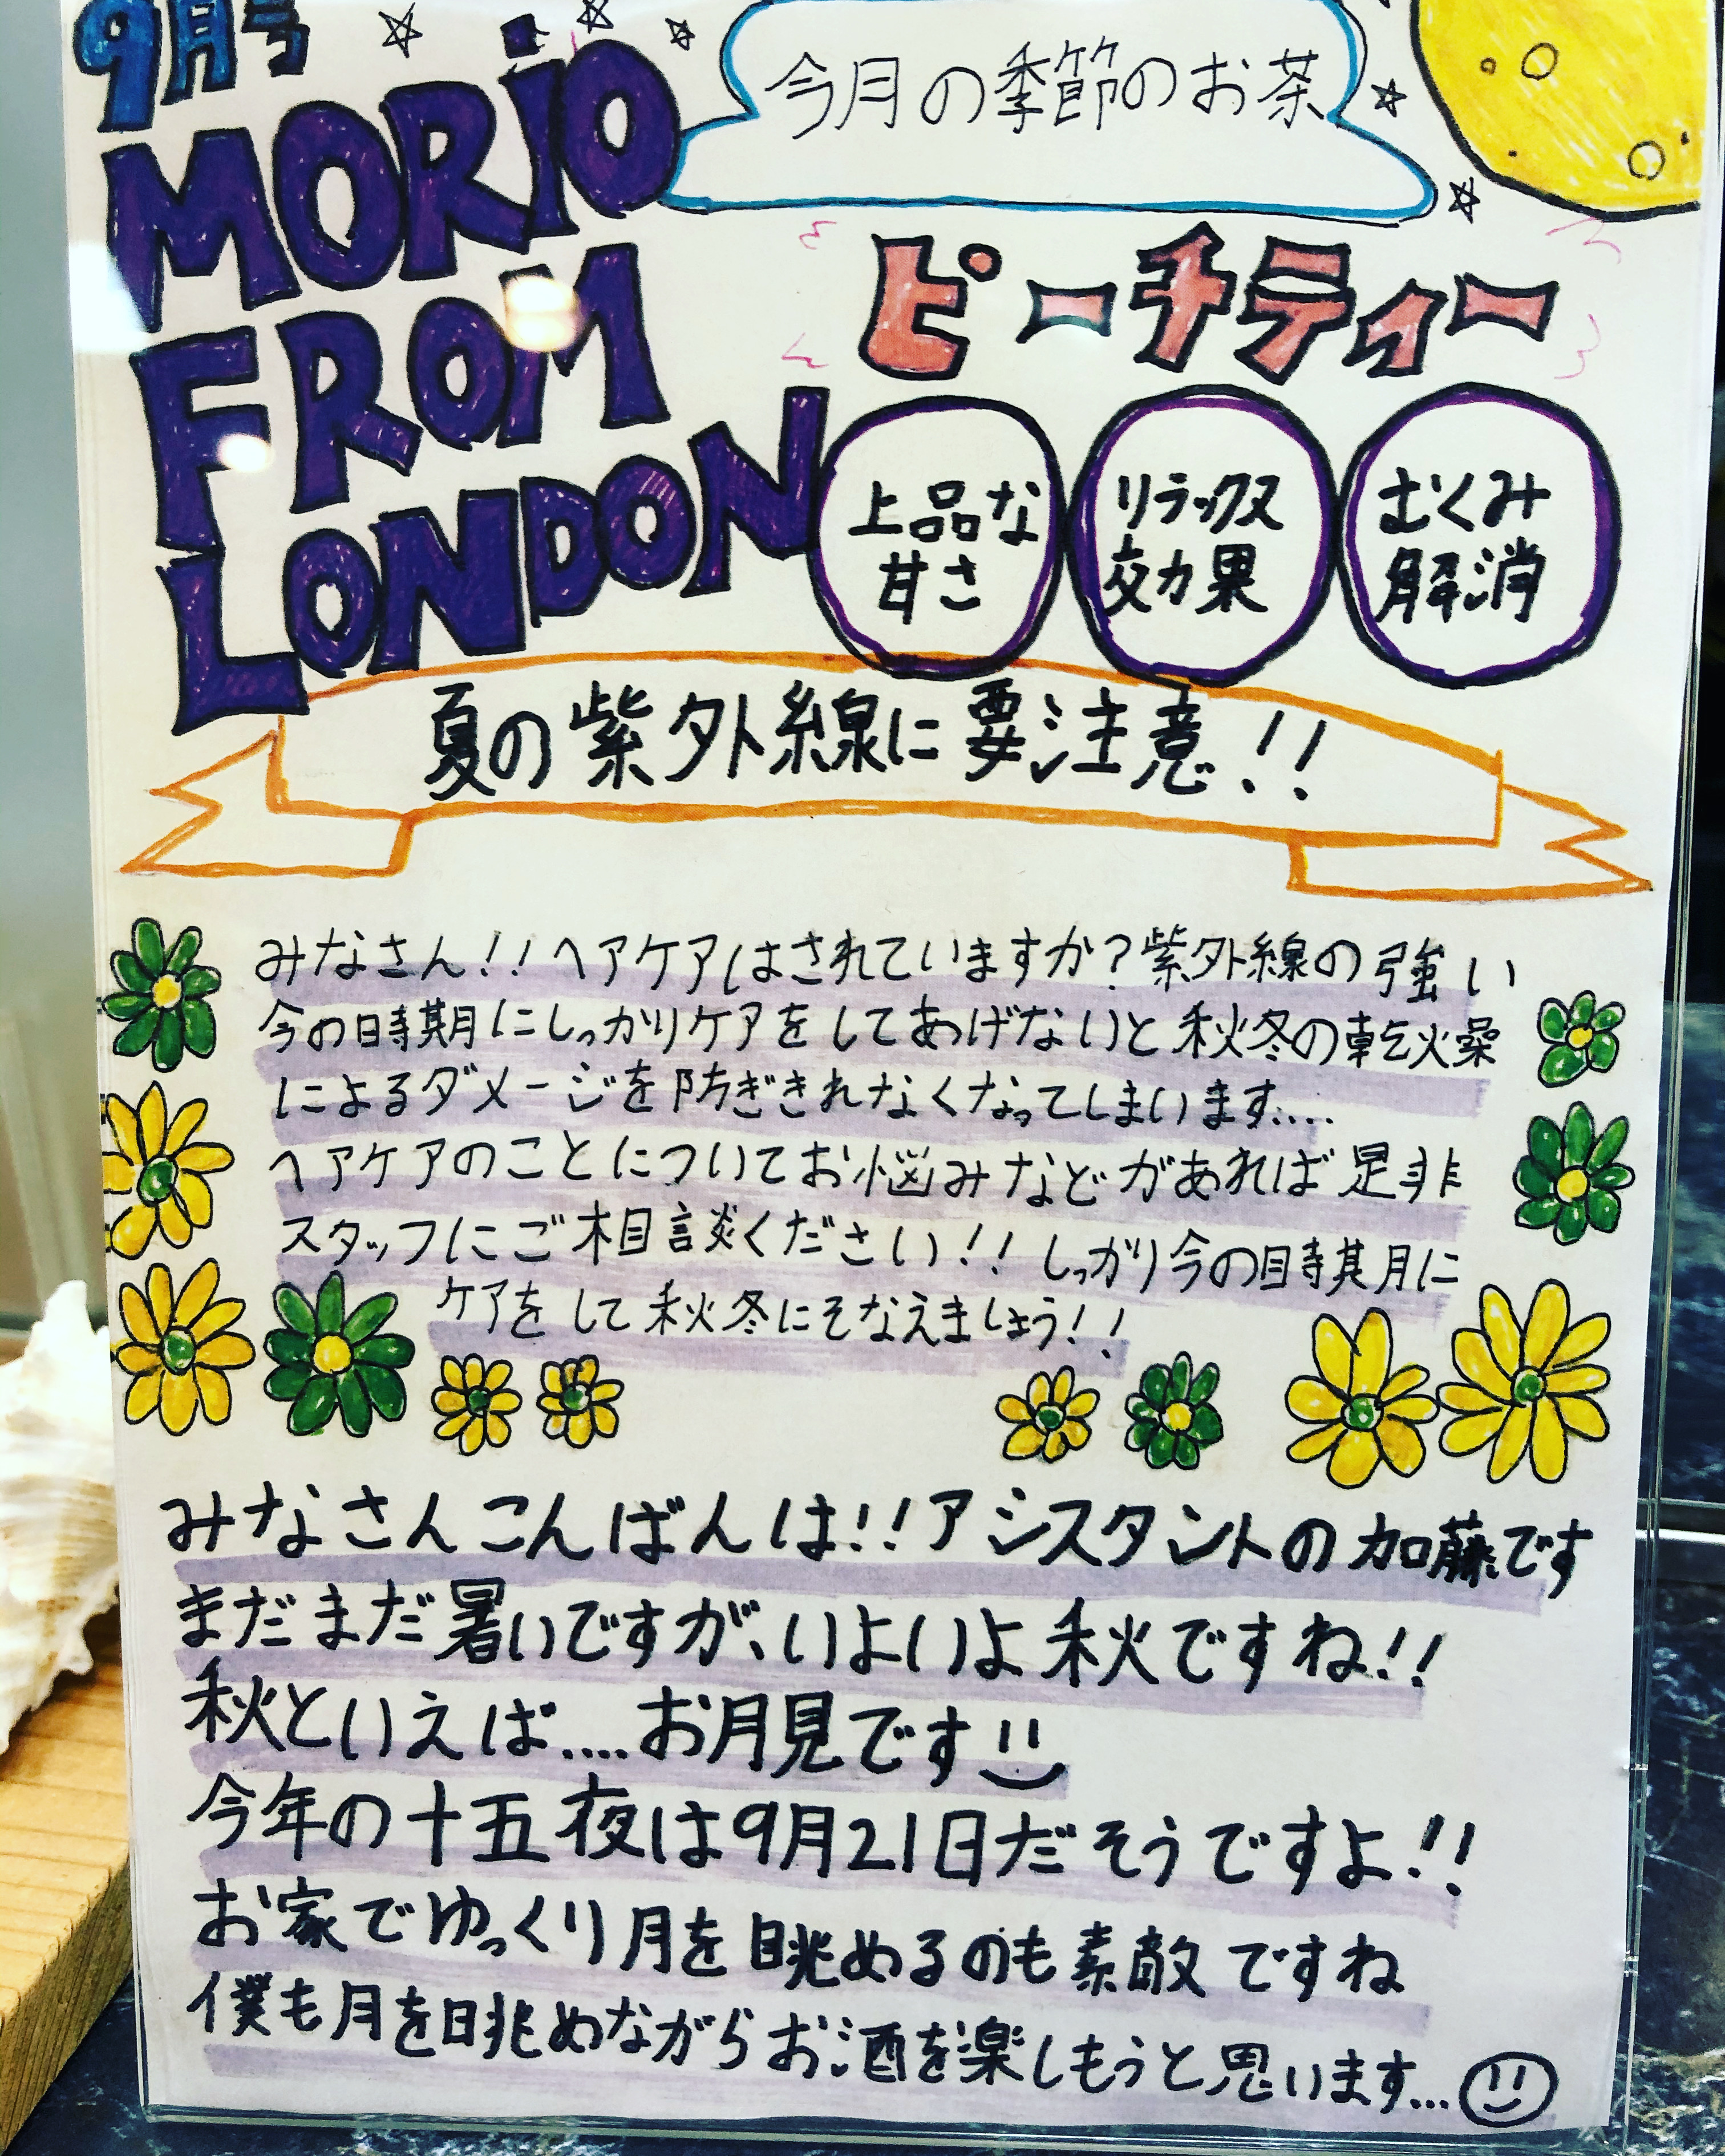 9月号
MORIO
FROM
LONDON
今月の季節のお茶
ピーチティー
上品な
甘さ
リラックス
効果
むくみ
解消
夏の紫外線に要注意!!
みなさん!!ヘアケアはされていますか?紫外線の強い
今の時期にしっかりケアをしてあげないと秋冬の乾燥
によるダメージを防ぎきれなくなってしまいます....
ヘアケアのことについてお悩みなどがあれば是非
スタッフにご相談ください!!しっかり今の時期に
ケアをして秋冬にそなえましょう!!
みなさんこんばんは!!アシスタントの加藤です
まだまだ暑いですが、いよいよ秋ですね!!
秋といえば....お月見です
今年の十五夜は9月21日だそうですよ!!
お家でゆっくり月を眺めるのも素敵ですね
僕も月を眺めながらお酒を楽しもうと思います...